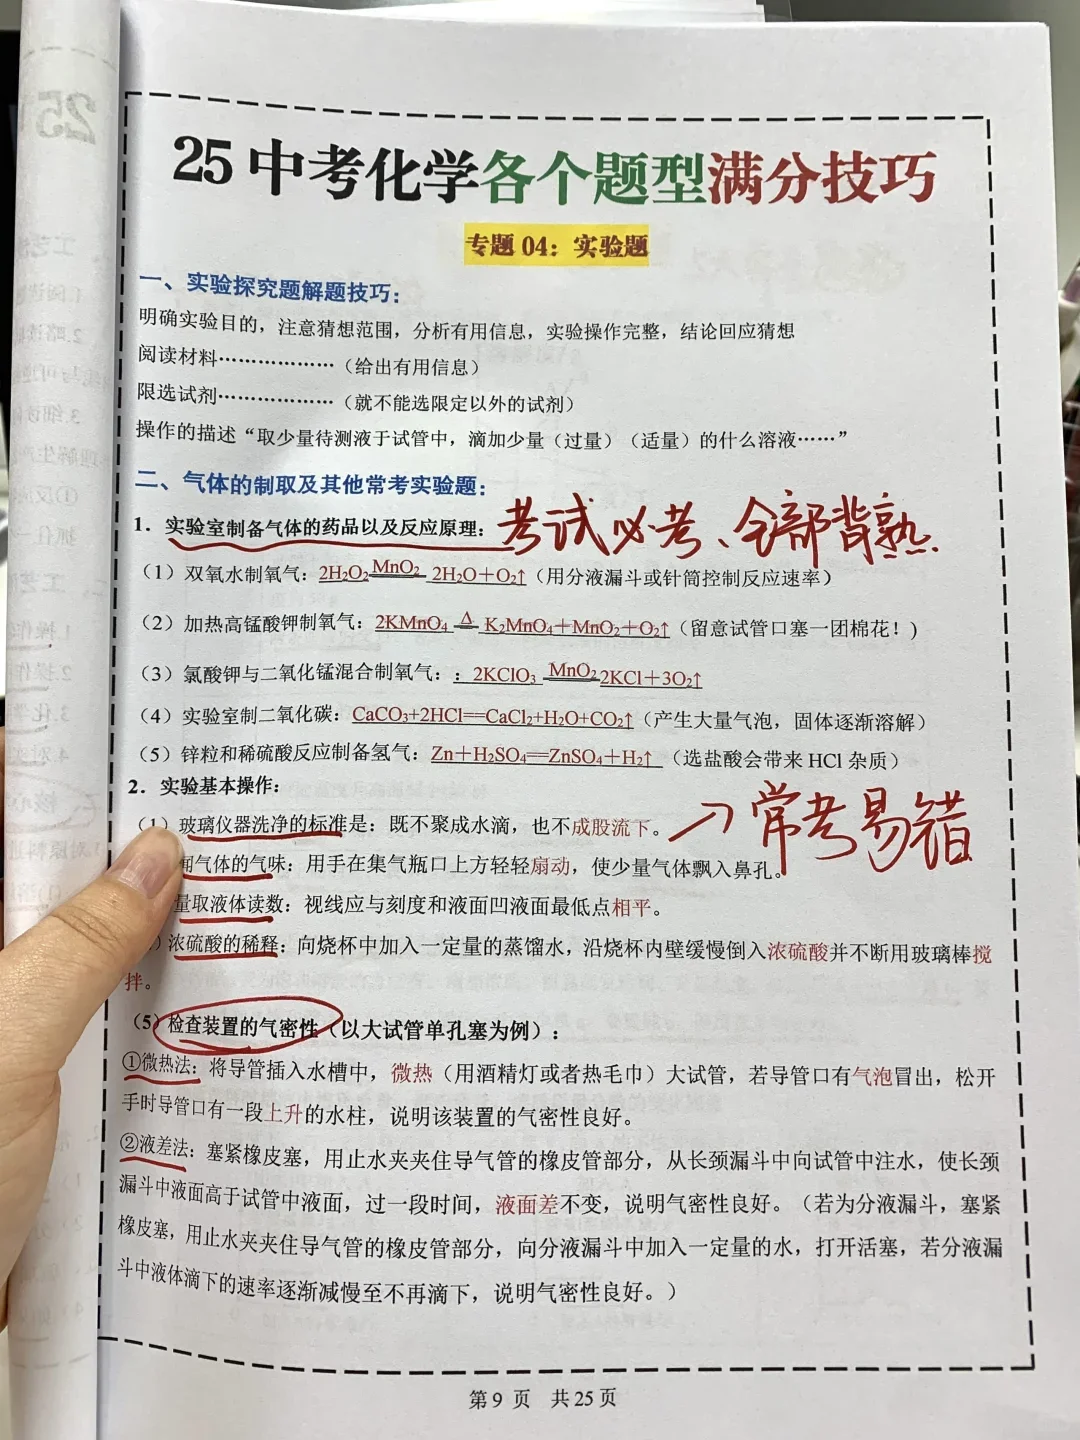 25 中考化学各个题型满分技巧
专题 04：实验题
一、实验探究题解题技巧：
明确实验目的，注意猜想范围，分析有用信息，实验操作完整，结论回应猜想
阅读材料………………（给出有用信息）
限选试剂………………（就不能选限定以外的试剂）
操作的描述“取少量待测液于试管中，滴加少量（过量）（适量）的什么溶液……”
二、气体的制取及其他常考实验题：
1．实验室制备气体的药品以及反应原理：考试必考、全部背熟.
（1）双氧水制氧气：2H₂O₂ MnO₂ 2H₂O＋O₂↑（用分液漏斗或针筒控制反应速率）
（2）加热高锰酸钾制氧气：2KMnO₄ Δ K₂MnO₄＋MnO₂＋O₂↑（留意试管口塞一团棉花！）
（3）氯酸钾与二氧化锰混合制氧气：：2KClO₃ MnO₂ 2KCl＋3O₂↑
（4）实验室制二氧化碳：CaCO₃+2HCl══CaCl₂+H₂O+CO₂↑（产生大量气泡，固体逐渐溶解）
（5）锌粒和稀硫酸反应制备氢气：Zn＋H₂SO₄══ZnSO₄＋H₂↑（选盐酸会带来 HCl 杂质）
2．实验基本操作：
（1）玻璃仪器洗净的标准是：既不聚成水滴，也不成股流下。→常考易错
闻气体的气味：用手在集气瓶口上方轻轻扇动，使少量气体飘入鼻孔。
量取液体读数：视线应与刻度和液面凹液面最低点相平。
）浓硫酸的稀释：向烧杯中加入一定量的蒸馏水，沿烧杯内壁缓慢倒入浓硫酸并不断用玻璃棒搅
拌。
（5）检查装置的气密性（以大试管单孔塞为例）：
①微热法：将导管插入水槽中，微热（用酒精灯或者热毛巾）大试管，若导管口有气泡冒出，松开
手时导管口有一段上升的水柱，说明该装置的气密性良好。
②液差法：塞紧橡皮塞，用止水夹夹住导气管的橡皮管部分，从长颈漏斗中向试管中注水，使长颈
漏斗中液面高于试管中液面，过一段时间，液面差不变，说明气密性良好。（若为分液漏斗，塞紧
橡皮塞，用止水夹夹住导气管的橡皮管部分，向分液漏斗中加入一定量的水，打开活塞，若分液漏
斗中液体滴下的速率逐渐减慢至不再滴下，说明气密性良好。）
第 9 页 共 25 页